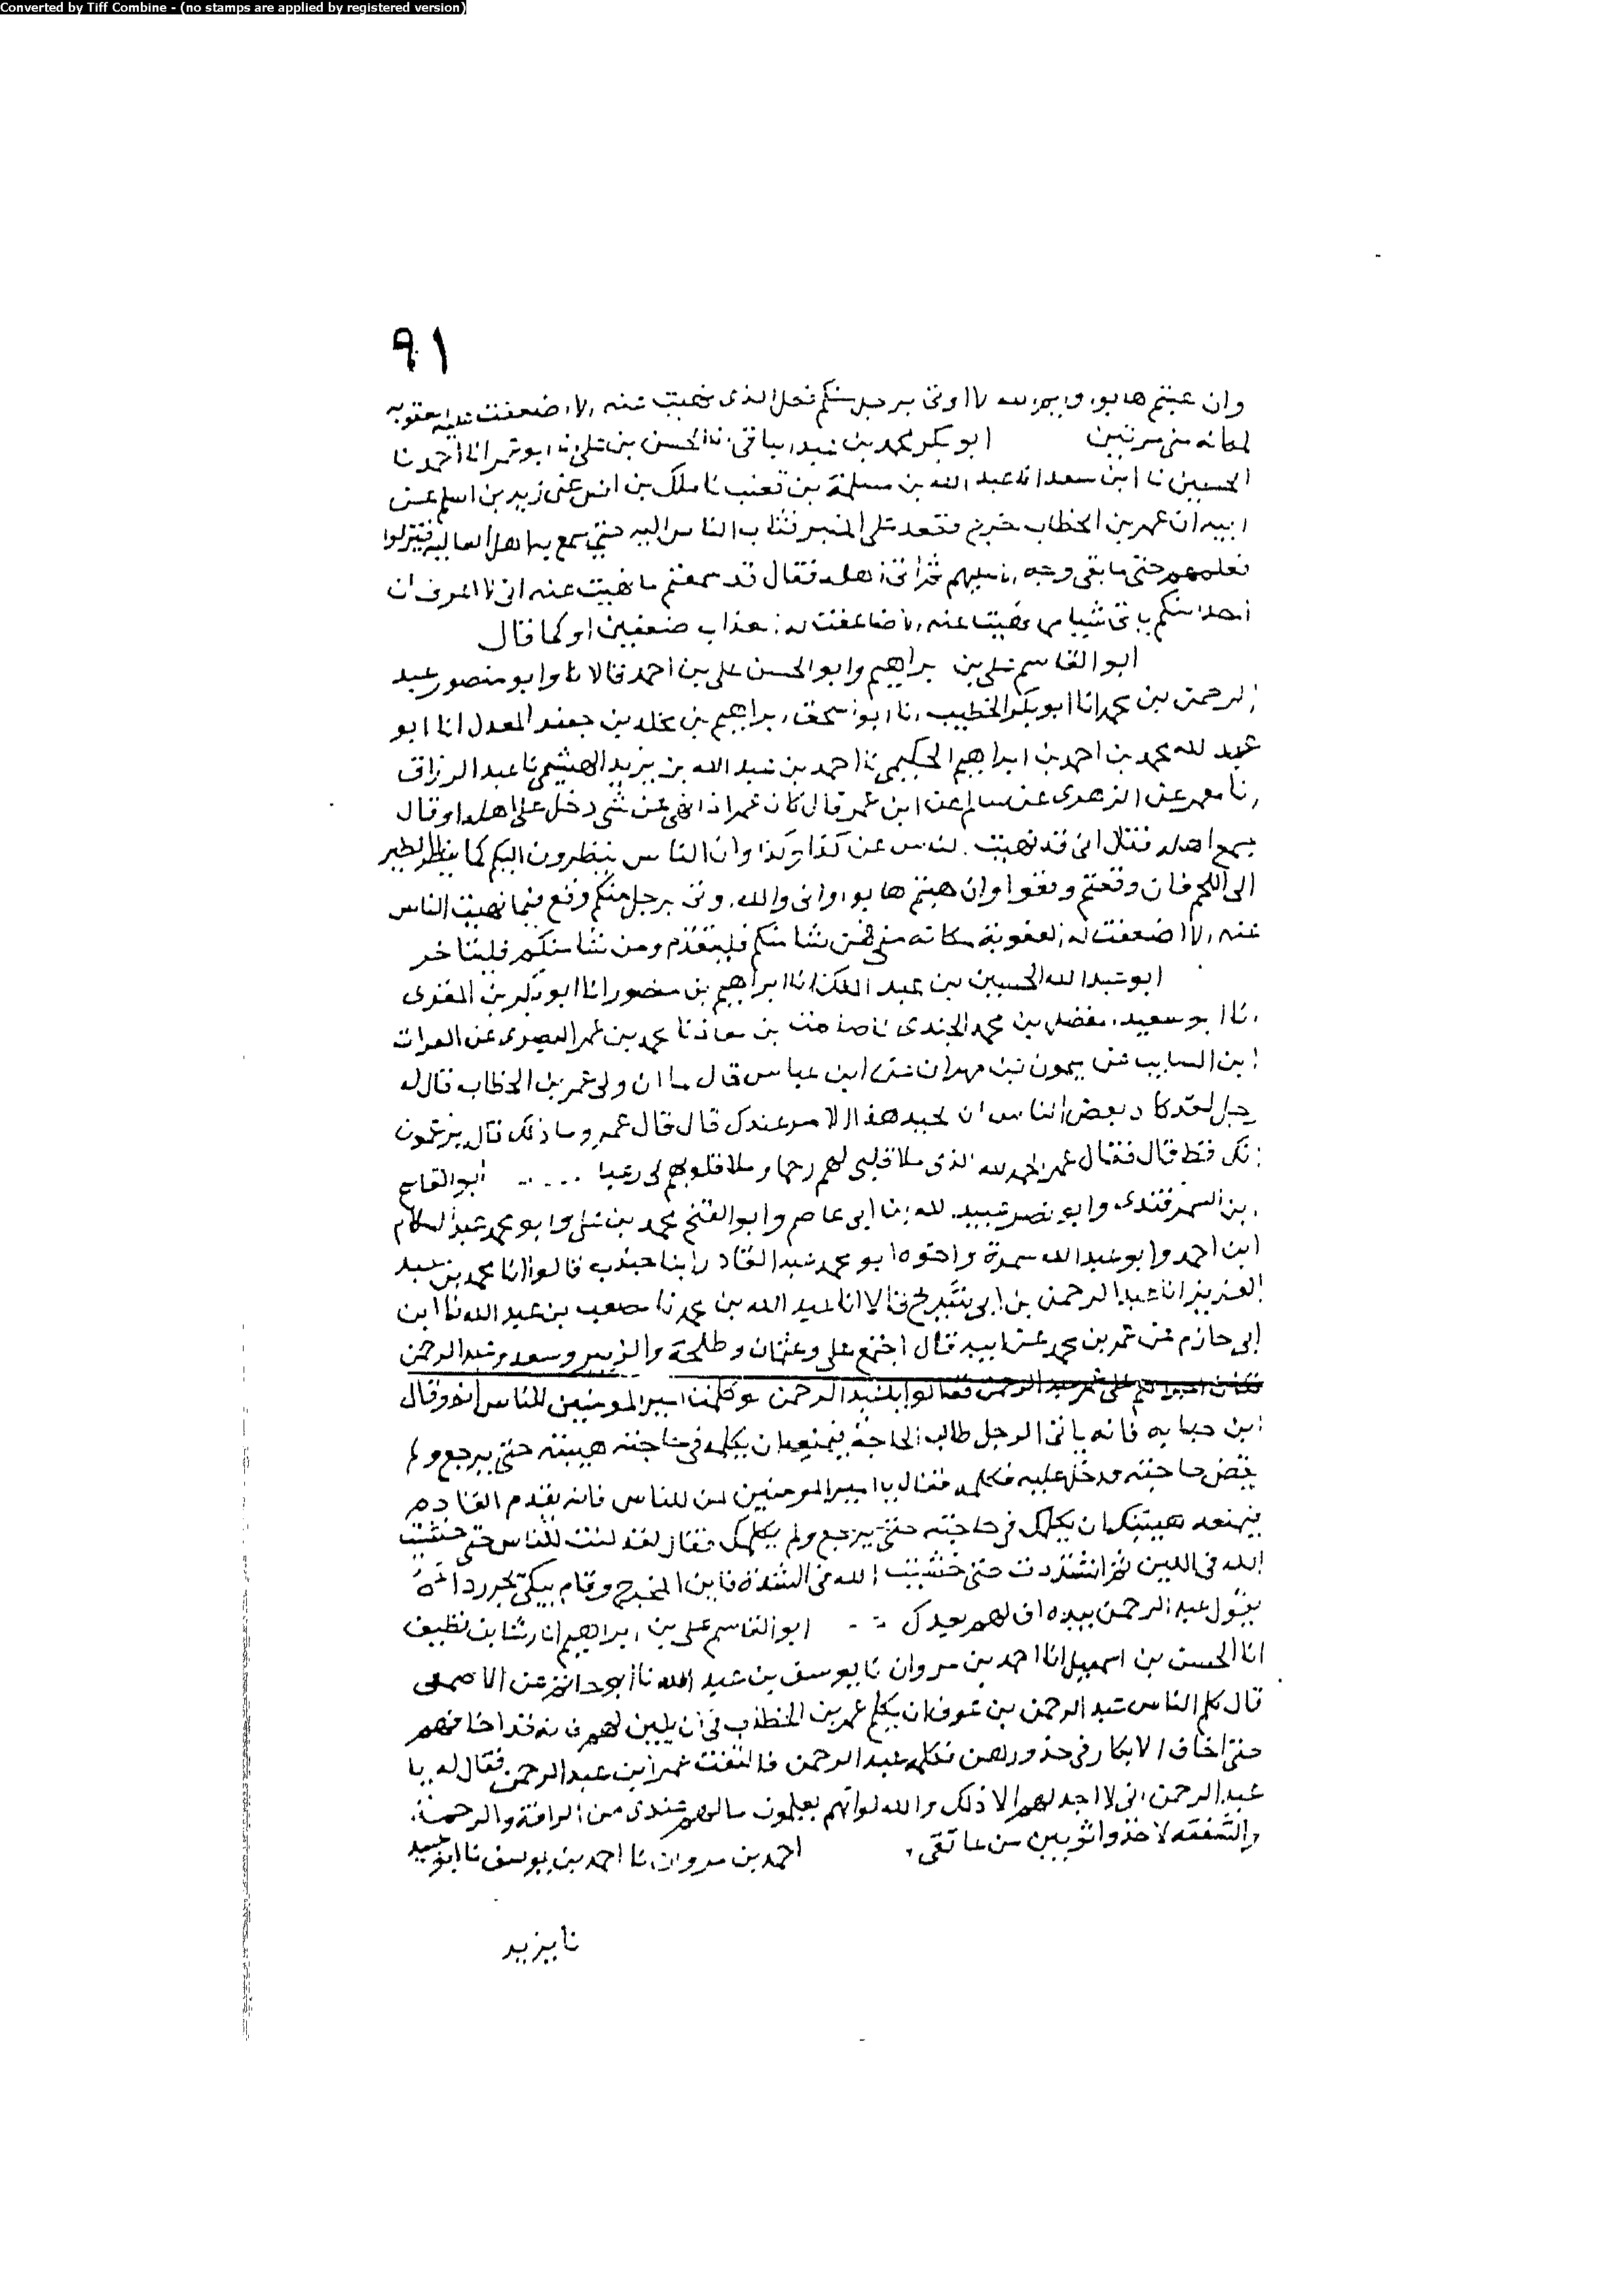 Converted by Tiff Combine - (no stamps are applied by registered version)
٩١
وان هبتم هابوا وايم الله لا اوتى برجل منكم فعل الذى نهيت عنه الا اضعفت عليه العقوبه
لمكانه منى مرتين ابو بكر محمد بن عبد الباقى انا الحسن بن على انا ابو عمر انا احمد نا
الحسين نا ابن سعد انا عبد الله بن مسلمة بن قعنب نا ملك بن انس عن زيد بن اسلم عن
ابيه ان عمر بن الخطاب خرج فقعد على المنبر فثاب الناس اليه حتى سمع به اهل العاليه فنزلوا
فعلمهم حتى ما بقى وجه الا علمهم ثم اتى اهله فقال قد سمعتم ما نهيت عنه انى لا اعرف ان
احدا منكم ياتى شيا مما نهيت عنه الا ضاعفت له العذاب ضعفين او كما قال
ابو القاسم على بن ابراهيم وابو الحسن على بن احمد قالا نا وابو منصور عبد
الرحمن بن محمد انا ابو بكر الخطيب انا ابو اسحق ابراهيم بن مخلد بن جعفر المعدل انا ابو
عبد الله محمد بن احمد بن ابراهيم الحكيمى نا احمد بن عبد الله بن يزيد الهشيمى نا عبد الرزاق
انا معمر عن الزهرى عن سالم عن ابن عمر قال كان عمر اذا نهى عن شى دخل على اهله او قال
جمع اهله فقال انى قد نهيت الناس عن كذا وكذا وان الناس ينظرون اليكم كما ينظر الطير
الى اللحم فان وقعتم وقعوا وان هبتم هابوا وانى والله لا اوتى برجل منكم وقع فيما نهيت الناس
عنه الا اضعفت له العقوبة لمكانه منى فمن شا منكم فليتقدم ومن شا منكم فليتاخر
ابو عبد الله الحسين بن عبد الملك انا ابراهيم بن منصور انا ابو بكر بن المقرى
انا ابو سعيد مفضل بن محمد الجندى نا صامت بن معاذ نا محمد بن عمر البصرى عن الفرات
ابن السايب عن ميمون بن مهران عن ابن عباس قال لما ان ولى عمر بن الخطاب قال له
رجل لقد كاد بعض الناس ان يحيد هذا الامر عندك قال قال عمر وما ذلك قال يزعمون
انك فظ قال فقال عمر الحمد لله الذى ملا قلبى لهم رحما وملا قلوبهم لى رعبا ابو القاسم
بن السمرقندى وابو نصر عبيد الله بن ابى عاصم وابو الفتح محمد بن على وابو محمد عبد السلام
ابن احمد وابو عبد الله سمرة واخوه ابو محمد عبد القادر ابنا جندب قالوا انا محمد بن عبد
العزيز انا عبد الرحمن بن ابى شريح قالا انا عبد الله بن محمد نا مصعب بن عبد الله نا ابن
ابى حازم عن عمر بن محمد عن ابيه قال اجتمع على وعثمان وطلحة والزبير وسعد وعبد الرحمن
فكان اجراهم على عمر عبد الرحمن فقالوا يا عبد الرحمن لو كلمت امير المومنين للناس
ابن حبابه فانه ياتى الرجل طالب الحاجة فيمنعه ان يكلمه فى حاجته هيبته حتى يرجع ولم
يقض حاجته فدخل عليه فكلمه فقال يا امير المومنين لن للناس فانه يقدم القادم
فيمنعه هيبتك ان يكلمك فى حاجته حتى يرجع ولم يكلمك فقال لقد لنت للناس حتى خشيت
الله فى اللين ثم اشتددت حتى خشيت الله فى الشدة فاين المخرج وقام يبكى يجر رداءه
يقول عبد الرحمن بيده اف لهم بعدك ابو القاسم على بن ابراهيم انا رشا بن نظيف
انا الحسن بن اسمعيل انا احمد بن مروان نا يوسف بن عبد الله نا ابو حاتم عن الاصمعى
قال كلم الناس عبد الرحمن بن عوف ان يكلم عمر بن الخطاب فى ان يلين لهم فانه قد اخافهم
حتى اخاف الابكار فى خدورهن فكلمه عبد الرحمن فالتفت عمر الى عبد الرحمن فقال له يا
عبد الرحمن انى لا اجد لهم الا ذلك والله لو انهم يعلمون ما لهم عندى من الرافة والرحمة
والشفقه لاخذوا ثوبى من عاتقى احمد بن مروان نا احمد بن يوسف نا ابو عبيد
نا يزيد